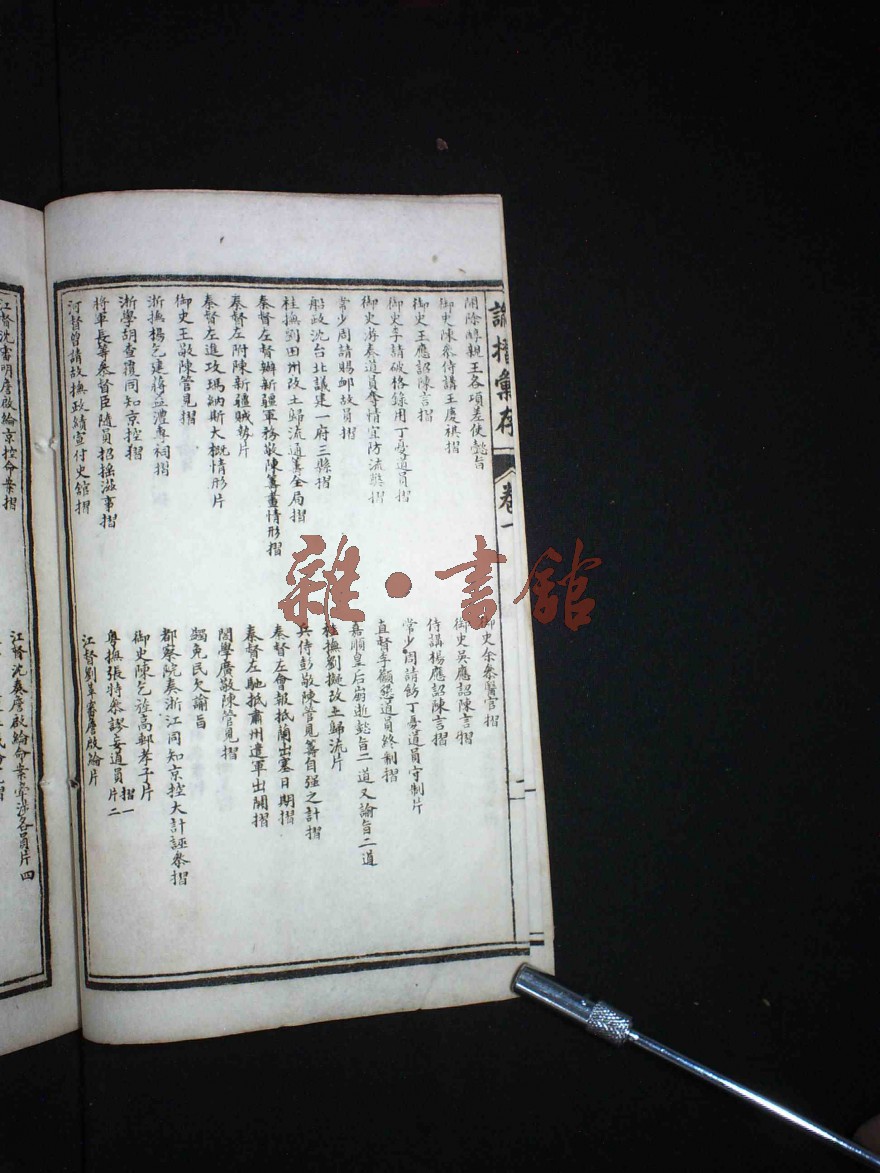 諭摺彙存
卷一
二
開除醇親王各項差使懿旨
御史余參醫官摺
御史陳參侍講王慶祺摺
御史吳應詔陳言摺
御史王應詔陳言摺
侍講楊應詔陳言摺
御史李請破格錄用丁憂道員摺
常少周請飭丁憂道員守制片
御史游奏道員奪情宜防流弊摺
直督李籲懇道員終制摺
常少周請賜卹故員摺
嘉順皇后崩逝懿旨二道又諭旨二道
船政沈台北議建一府三縣摺
桂撫劉擬改土歸流片
桂撫劉田州改土歸流通籌全局摺
兵侍彭敬陳管見籌自强之計摺
秦督左督辦新疆軍務敬陳籌畫情形摺
秦督左會報抵蘭出塞日期摺
秦督左附陳新疆賊勢片
秦督左馳抵肅州遣軍出關摺
秦督左進攻瑪納斯大概情形片
閣學廣敬陳管見摺
御史王敬陳管見摺
蠲免民欠諭旨
浙撫楊乞建蔣益澧專祠摺
都察院奏浙江同知京控大計誣參摺
浙學胡查覆同知京控摺
御史陳乞旌高郵孝子片
將軍長等參督臣隨員招搖滋事摺
粵撫張特參謬妄道員摺一片二
河督曾請故撫政績宣付史館摺
江督劉革審詹啟綸片
江督沈審明詹啟綸京控命案摺
江督沈奏詹啟綸命案牽涉各員片四
雜·書館